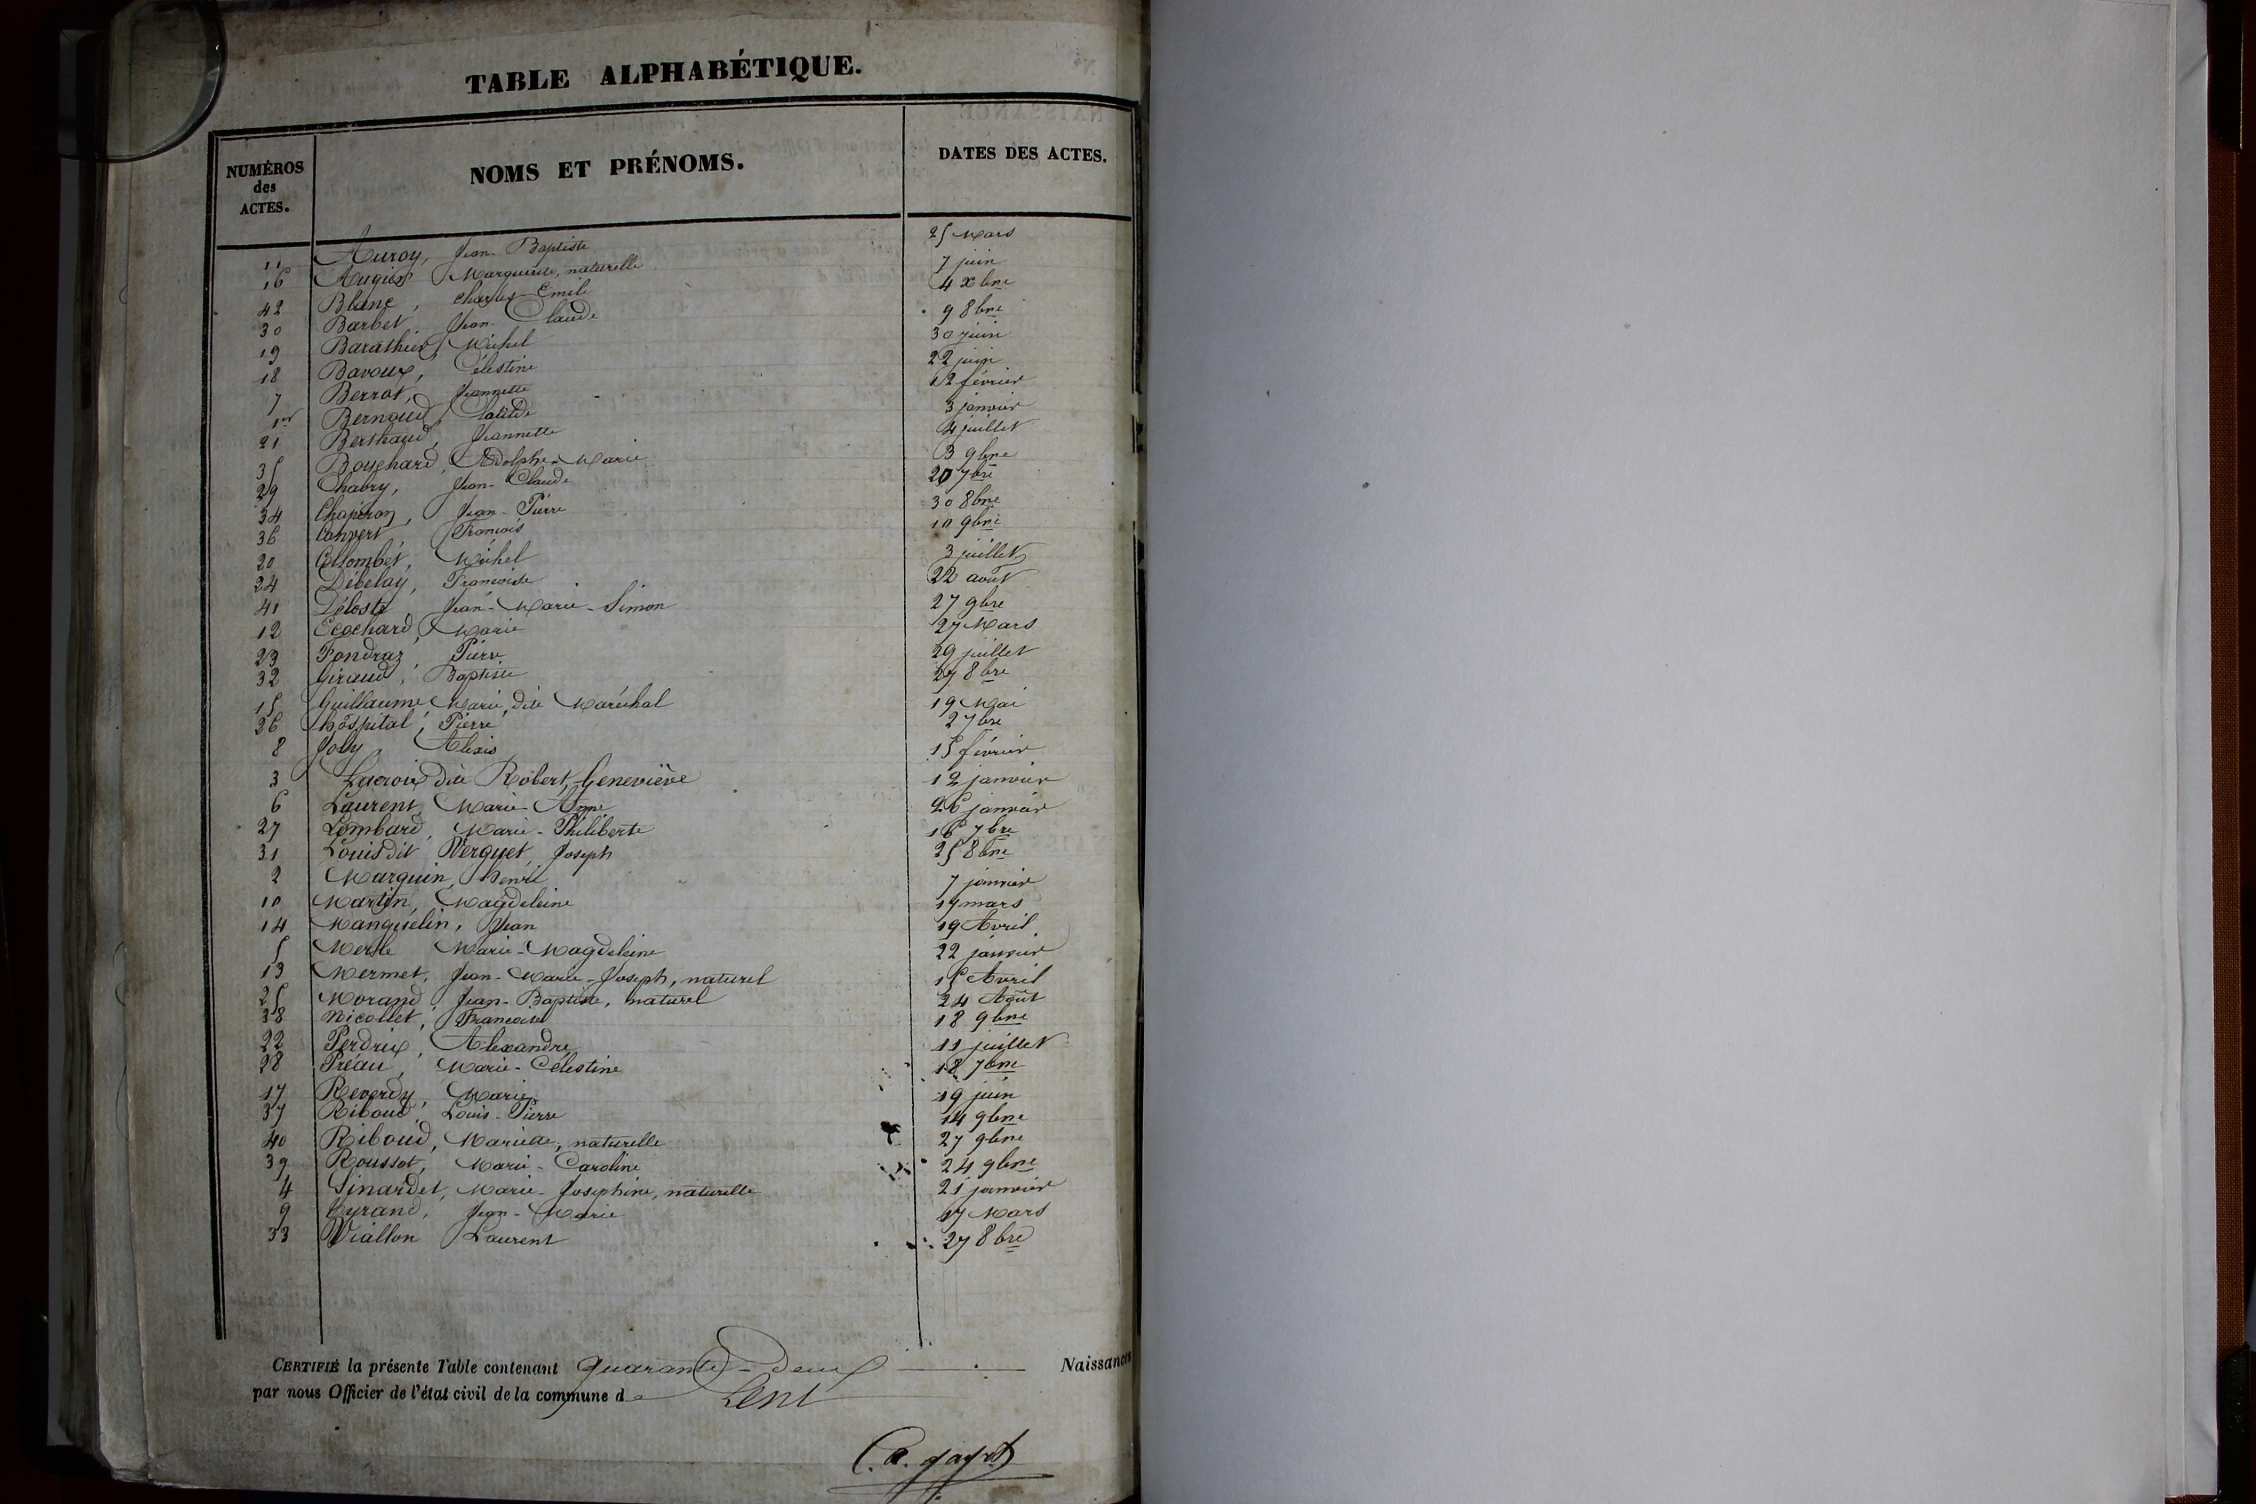 TABLE ALPHABÉTIQUE.
NUMÉROS des ACTES. NOMS ET PRÉNOMS. DATES DES ACTES.
11 Auroy, Jean-Baptiste 25 Mars
16 Augier Marguerite, naturelle 7 juin
42 Blanc, Charles-Emile 4 xbre
30 Barbet Jean-Claude 9 8bre
19 Barathier, Michel 30 juin
18 Bavoux, Célestine 22 juin
7 Berrot, Jeannette 12 février
1er Bernoud Claude 3 janvier
21 Berthaud, Jeannette 4 juillet
35 Bouchard, Adolphe-Marie 3 9bre
29 Chabry, Jean-Claude 20 7bre
34 Chaperon, Jean-Pierre 30 8bre
36 Convert, François 10 9bre
20 Collombet, Michel 3 juillet
24 Débelay, Françoise 22 août
41 Jean-Marie-Simon 27 9bre
12 Ecochard, Marie 27 Mars
23 Fondraz, Pierre 29 juillet
32 Giraud, Baptiste 27 8bre
15 Guillaume Marie, dite Maréchal 19 Mai
26 hôspital, Pierre 2 7bre
8 Joly, Alexis 15 février
3 Lacroix dite Robert, Geneviève 12 janvier
6 Laurent, Marie-Anne 26 janvier
27 Lombard, Marie-Philiberte 16 7bre
31 Louis dit Verguet, Joseph 25 8bre
2 Marguin, henri 7 janvier
10 Martin, Magdeleine 17 mars
14 Manguelin, Jean 19 Avril
5 Merle Marie-Magdeleine 22 janvier
13 Mermet, Jean-Marie-Joseph, naturel 15 Avril
25 Morand, Jean-Baptiste, naturel 24 Août
38 Nicollet, Françoise 18 9bre
22 Perdrix, Alexandre 11 juillet
28 Préau, Marie-Célestine 18 7bre
17 Reverdy, Marie 19 juin
37 Riboud Louis-Pierre 14 9bre
40 Riboud, Mariette, naturelle 27 9bre
39 Roussot, Marie-Caroline 24 9bre
4 Sinardet, Marie-Joséphine, naturelle 21 janvier
9 Jean-Marie 17 Mars
33 Viallon Laurent 27 8bre
CERTIFIÉ la présente Table contenant quarante-deux Naissances
par nous Officier de l'état civil de la commune de Lent